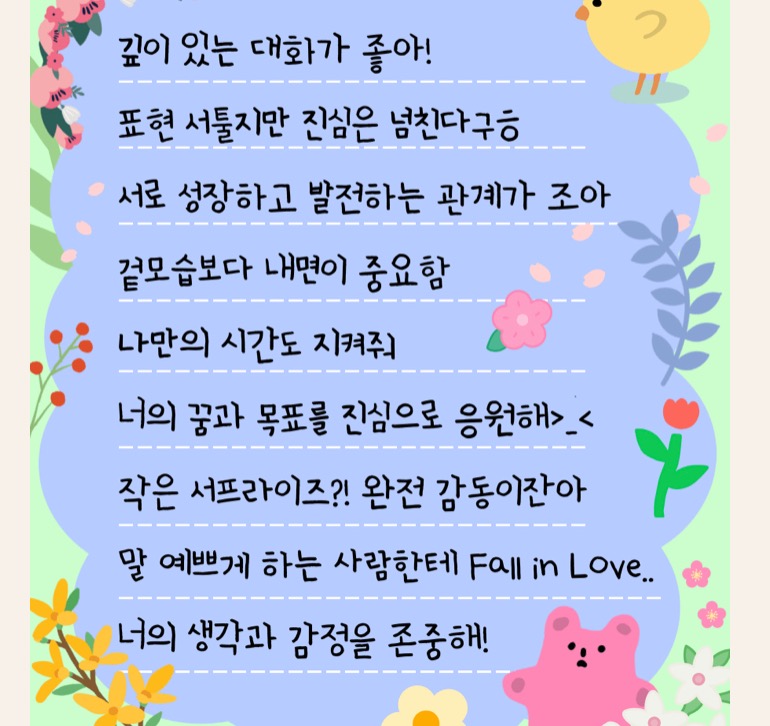 깊이 있는 대화가 좋아!
표현 서툴지만 진심은 넘친다구ㅎ
서로 성장하고 발전하는 관계가 조아
겉모습보다 내면이 중요함
나만의 시간도 지켜줘
너의 꿈과 목표를 진심으로 응원해>_<
작은 서프라이즈?! 완전 감동이잖아
말 예쁘게 하는 사람한테 Fall in Love..
너의 생각과 감정을 존중해!